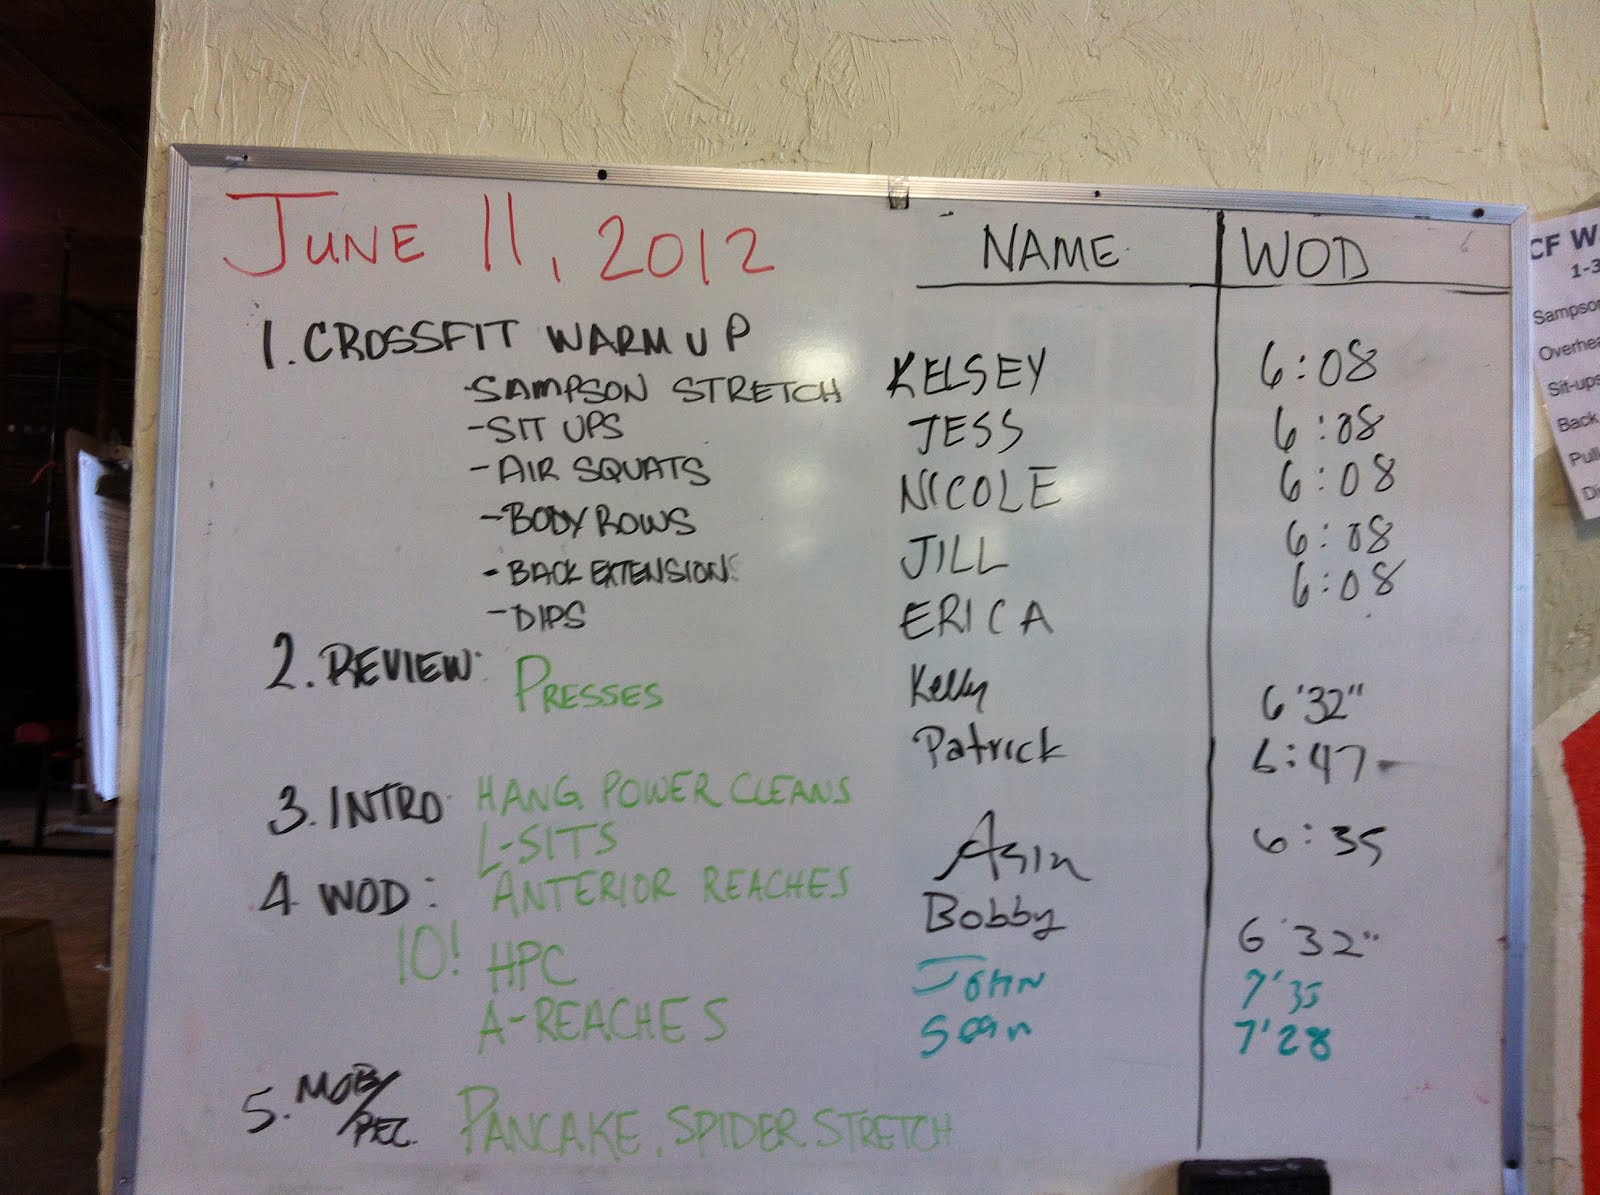 JUNE 11, 2012
1. CROSSFIT WARM UP
-SAMPSON STRETCH
-SIT UPS
-AIR SQUATS
-BODY ROWS
-BACK EXTENSIONS
-DIPS
2. REVIEW: PRESSES
3. INTRO: HANG POWER CLEANS
L-SITS
ANTERIOR REACHES
4. WOD:
10! HPC
A-REACHES
5. MOB/REC. PANCAKE, SPIDER STRETCH
NAME WOD
KELSEY 6:08
JESS 6:08
NICOLE 6:08
JILL 6:08
ERICA 6:08
Kelly 6'32"
Patrick 6:47
6:35
Bobby 6'32"
JOHN 7'35
Sean 7'28
CF W
1-3
Sampso
Overhea
Sit-ups
Back
Pull
Di